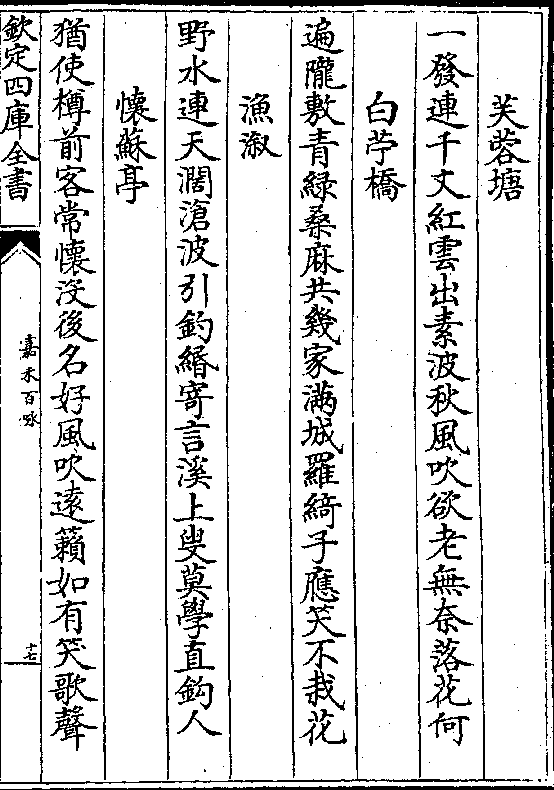 芙蓉塘
一發連千丈紅雲出素波秋風吹欲老無奈落花何
白苧橋
遍隴敷青緑桑麻共幾家滿城羅綺子應笑不栽花
漁溆
野水連天濶滄波引釣緡寄言溪上叟莫學直鈎人
懐蘇亭
猶使樽前客常懐沒後名好風吹逺籟如有笑歌聲
欽定四庫全書
嘉禾百咏
十七